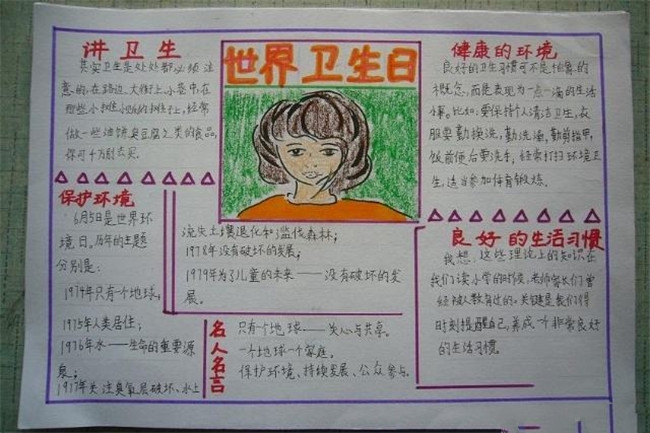 讲卫生
其实卫生是处处都必须注
意的,在路边、大街上、小巷中,在
那些个摊小贩的摊子上,经常
做一些油饼臭豆腐之类的食品,
你可千万别去买。
世界卫生日
健康的环境
良好的卫生习惯可不是抽象的
概念,而是表现为一点一滴的生活
小事。比如:要保持个人清洁卫生,衣
服要勤换洗,勤洗澡,勤剪指甲,
饭前便后要洗手,经常打扫环境卫
生,适当参加体育锻炼。
保护环境
6月5日是世界环
境日。历年的主题
分别是:
1974年只有一个地球;
1975年人类居住;
1976年水——生命的重要源
泉;
1917年关注臭氧层破坏、水土
流失土壤退化和滥伐森林;
1978年没有破坏的发展;
1979年为了儿童的未来——没有破坏的发
展。
名人名言
只有一个地球——关心与共享。
一个地球一个家庭。
保护环境、持续发展、公众参与。
良好的生活习惯
我想,这些理论上的知识在
我们读小学的时候,老师家长们曾
经教过的。关键是我们得
时刻提醒自己,养成一个非常良好
的生活习惯。